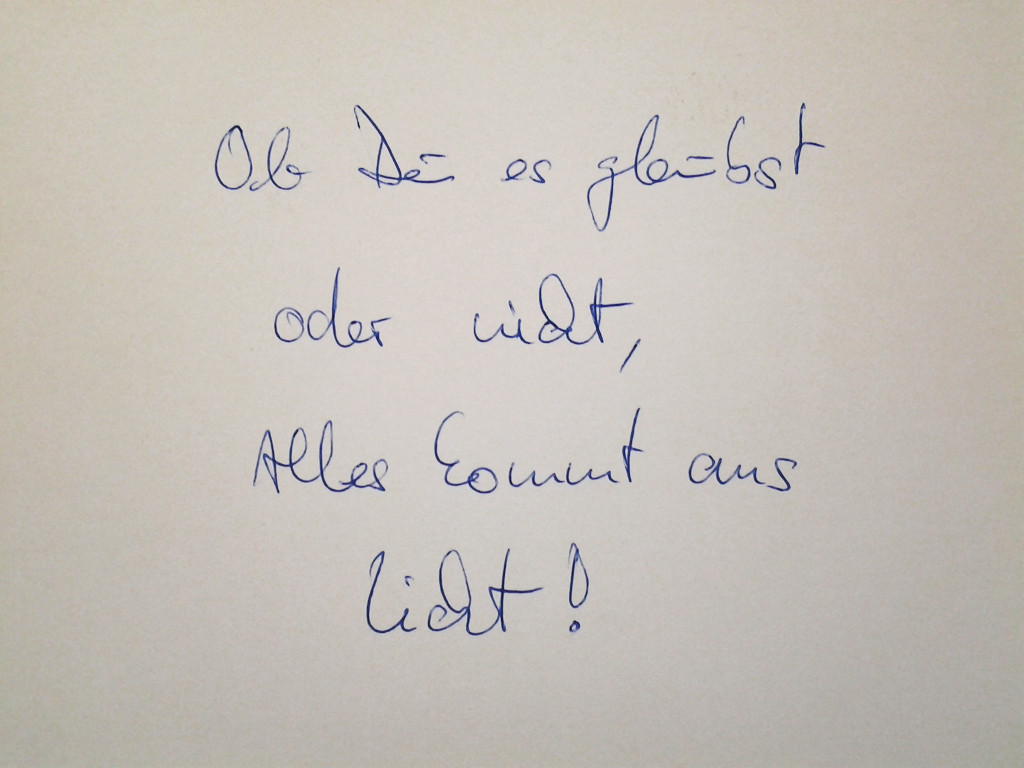 Ob Du es glaubst
oder nicht,
Alles kommt ans
Licht!